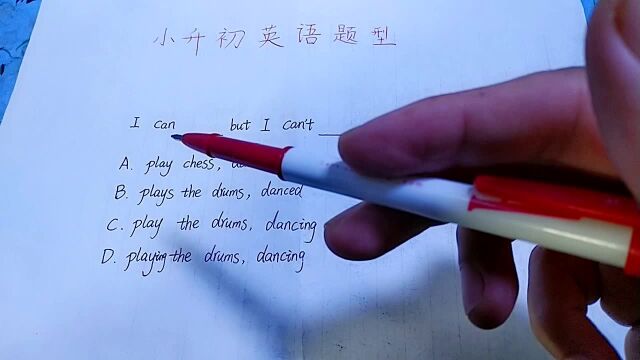 小升初英语题型
I can ____ but I can't ____
A. play chess,
B. plays the drums, danced
C. play the drums, dancing
D. playing the drums, dancing